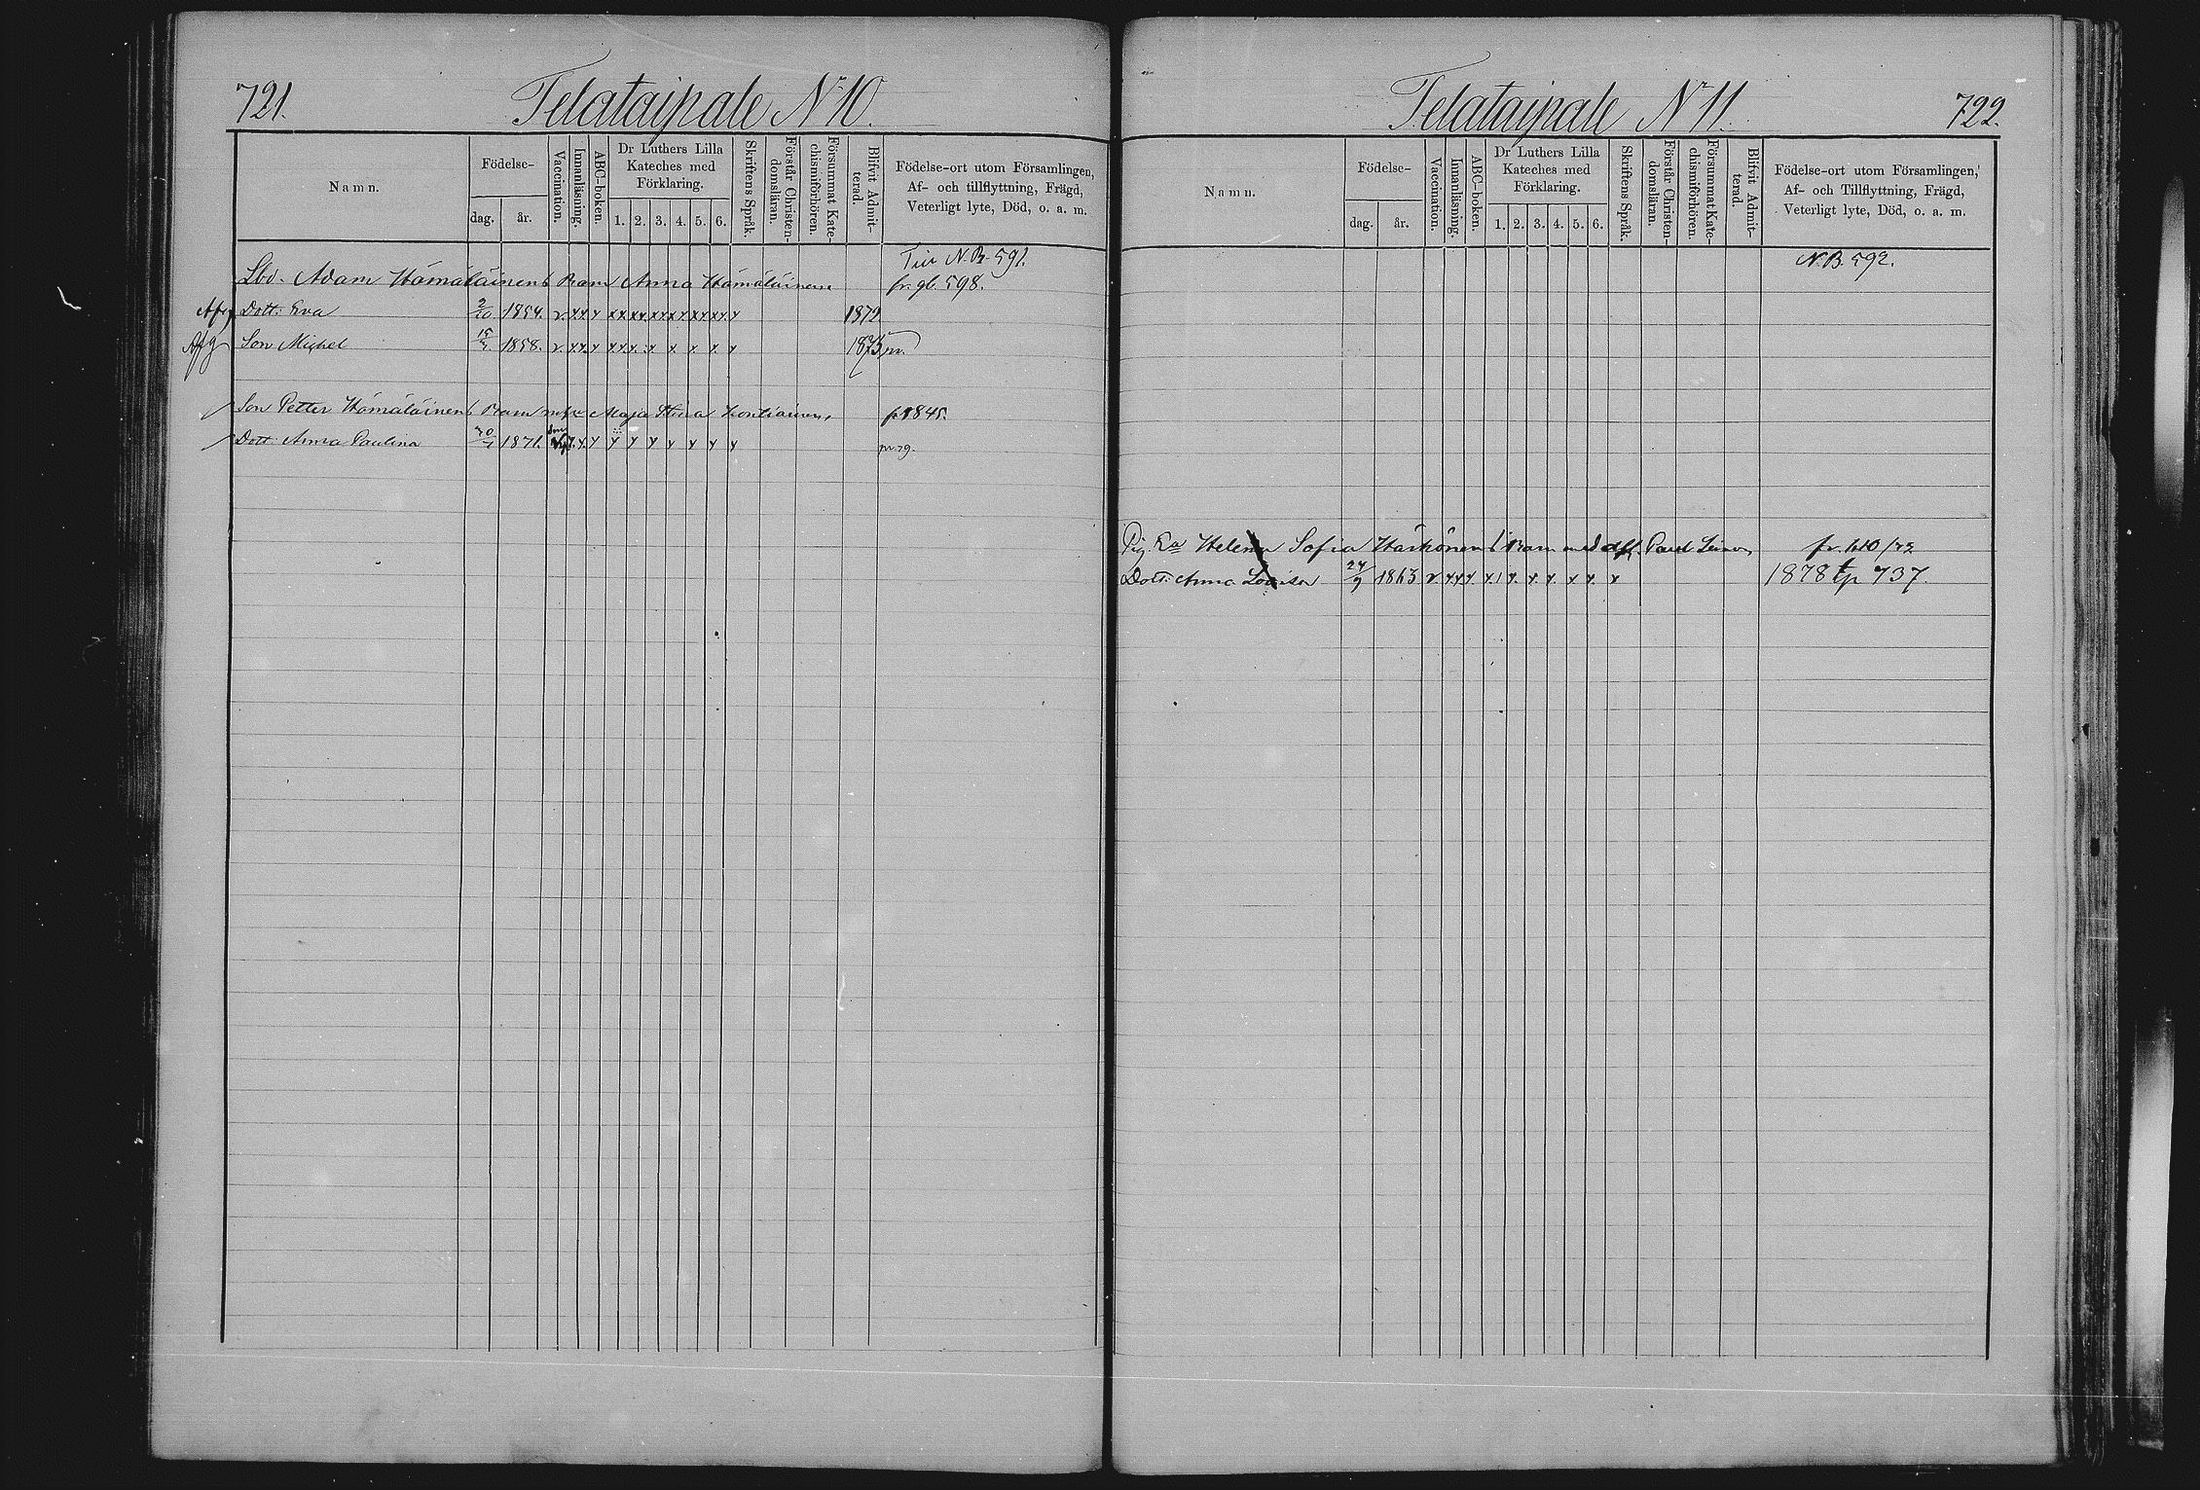 721.
Telataipale N 10.
Namn.
Födelse-
dag.
år.
Vaccination.
Innanläsning.
ABC-boken.
Dr Luthers Lilla
Kateches med
Förklaring.
1. 2. 3. 4. 5. 6.
Skriftens Språk.
Förstår Christen-
domsläran.
Försummat Kate-
chismiförhören.
Blifvit Admit-
terad.
Födelse-ort utom Församlingen,
Af- och tillflyttning, Frägd,
Veterligt lyte, Död, o. a. m.
N. B. 591.
Adam Hämäläinens Barn Anna Hämäläinen fr. gb. 598.
Dott: Eva 2/10 1854. v. x x x x x x x x x x x x x x x 1872
Son Michel 1858. v. x x x x x x x x x x x x 1875
Son Petter Hämäläinens Barn Maja Stina Kontiainen 845.
Dott: Anna Paulina 1871. x x x x x x x x x
Telataipale N 11.
722.
Namn.
Födelse-
dag.
år.
Vaccination.
Innanläsning.
ABC-boken.
Dr Luthers Lilla
Kateches med
Förklaring.
1. 2. 3. 4. 5. 6.
Skriftens Språk.
Förstår Christen-
domsläran.
Försummat Kate-
chismiförhören.
Blifvit Admit-
terad.
Födelse-ort utom Församlingen,
Af- och Tillflyttning, Frägd,
Veterligt lyte, Död, o. a. m.
N. B. 592.
Pig. Helena Sofia Härkönens Barn med Paul
Dott: Anna Lovisa 24/9 1863 v. x x x x x x x x x x 1878 tp 737.